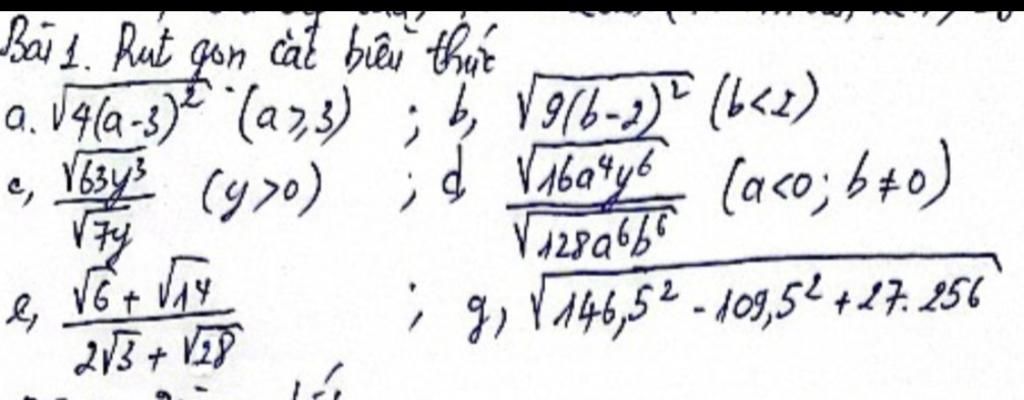 Bài 1. Rut gọn các biểu thức
a. √4(a-3)² (a ≥ 3) ; b, √9(b-2)² (b < 2)
c, √63y³ / √7y (y > 0) ; d √16a⁴y⁶ / √128a⁶b⁶ (a < 0; b ≠ 0)
e, √6 + √14 / 2√3 + √28 ; g, √146,5² - 109,5² + 27. 256